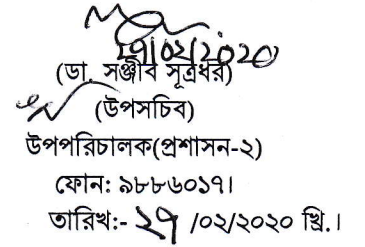 (ডা. সঞ্জীব সূত্রধর)
(উপসচিব)
উপপরিচালক(প্রশাসন-২)
ফোন: ৯৮৮৬০১৭।
তারিখ:- ২৭ /০২/২০২০ খ্রি.।